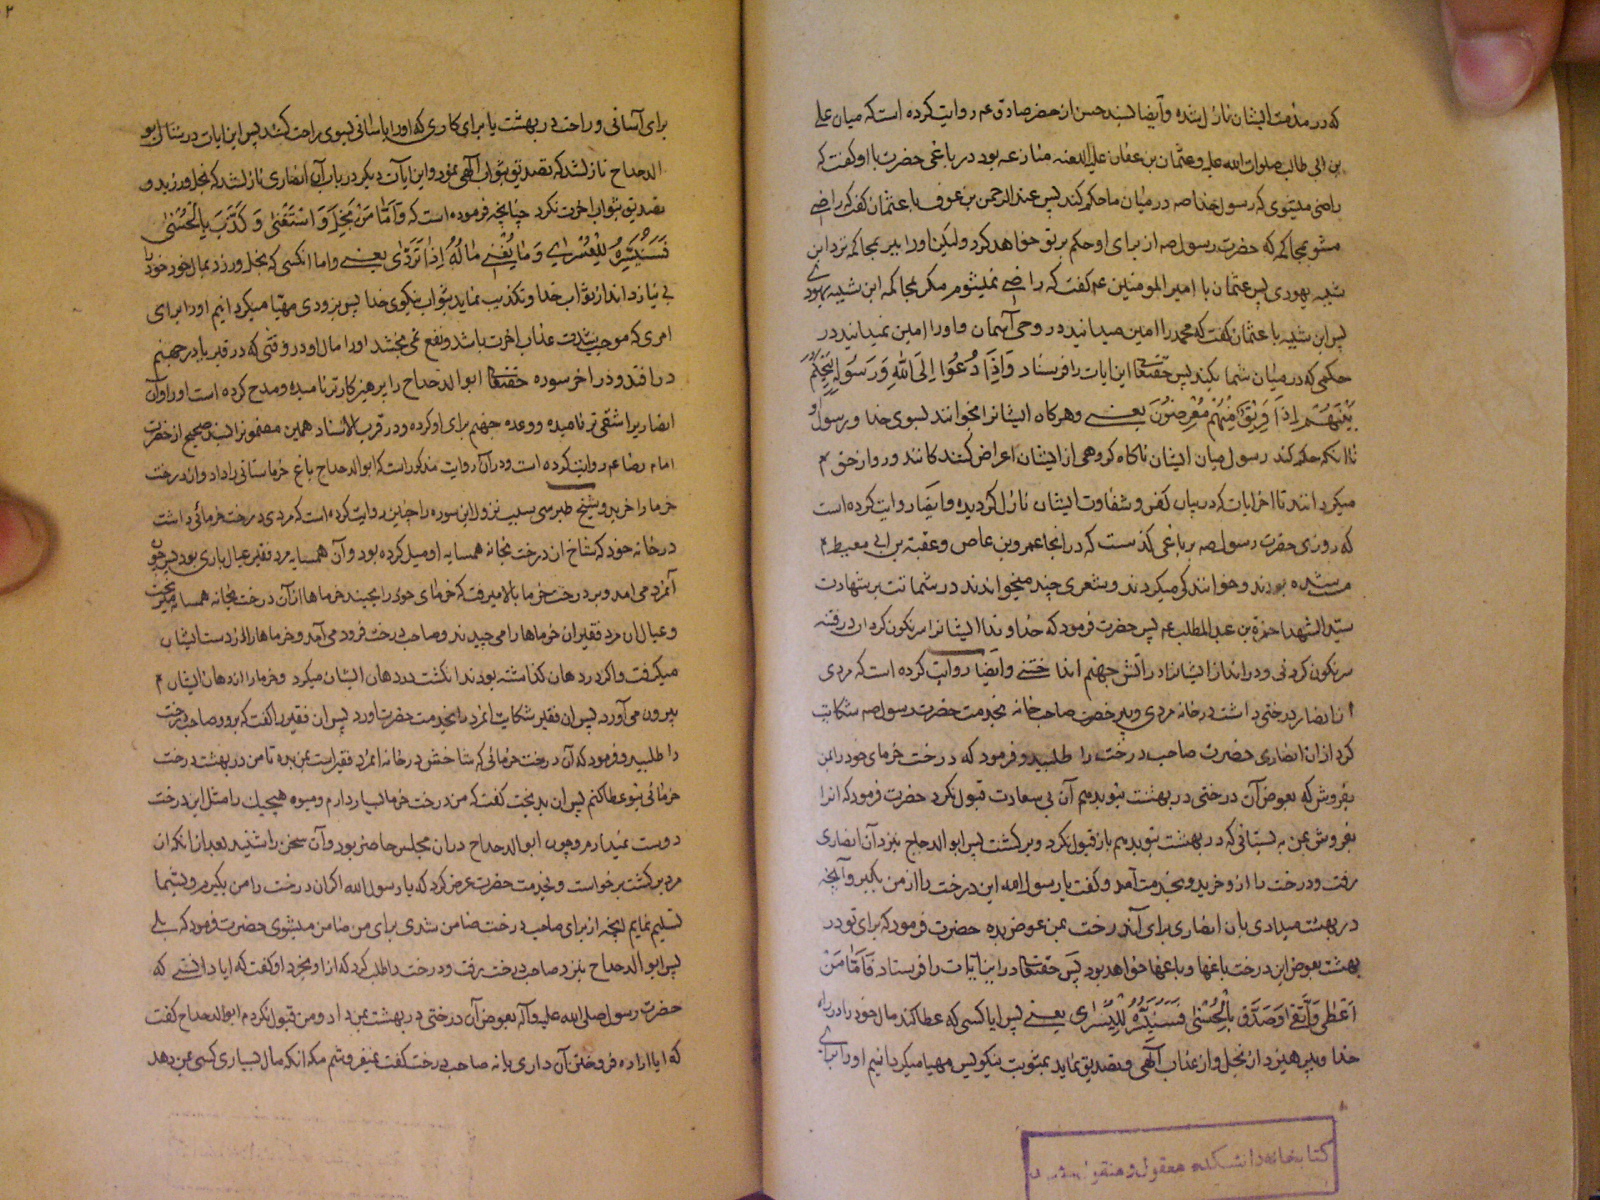 که در مذمت ایشان نازل شده و ایضا بسند حسن از حضرصادق عم روایت کرده است که میان علی
بن ابی طالب صلوات الله علیه و عثمان بن عفان علیه اللعنه منازعه بود در باغی حضرت با او کفت که
راضی میشوی که رسول خدا صه در میان ما حکم کند پس عبد الرحمن بن عوف با عثمان کفت که راضی
مشو بمحاکمه که حضرت رسول صه از برای او حکم بر تو خواهد کرد ولیکن او را ببر بمحاکمه نزد ابن
شیبه یهودی پس عثمان با امیر المومنین عم کفت که راضی نمیشوم مکر بمحاکمه ابن شیبه یهودی
پس ابن شیبه با عثمان کفت که محمد را امین میدانید در وحی آسمان و او را امین نمیدانید در
حکمی که در میان شما بکند پس حقتعا این ایات را فرستاد وَاِذَا دُعُوا اِلَی اللهِ وَرَسُولِهِ لِیَحْکُمَ
بَیْنَهُمْ اِذَا فَرِیقٌ مِنْهُمْ مُعْرِضُونَ یعنی و هرکاه ایشانرا بخوانند بسوی خدا و رسول او
تا انکه حکم کند رسول میان ایشان ناکاه کروهی از ایشان اعراض کنندکانند و رو از حق
میکردانند تا اخر ایات که در بیان کفر و شقاوت ایشان نازل کردیده و ایضا روایت کرده است
که روزی حضرت رسول صه بر باغی کذشت که در انجا عمرو بن عاص و عقبة بن ابی معیط
مست شده بودند و خوانندکی میکردند و شعری چند میخواندند در شماتت بر شهادت
سید الشهدا حمزة بن عبد المطلب عم پس حضرت فرمود که خداوندا ایشانرا سرنکون کردان در فتنه
سرنکون کردنی و در انداز ایشانرا در اتش جهنم انداختنی و ایضا روایت کرده است که مردی
از انصار درختی داشت در خانه مردی و صاحب خانه بخدمت حضرت رسول صه شکایت
کرد از ان انصاری حضرت صاحب درخت را طلبید و فرمود که درخت خرمای خود را بمن
بفروش که بعوض آن درختی در بهشت بتو بدهم آن بی سعادت قبول نکرد حضرت فرمود که انرا
بفروش بمن به بستانی که در بهشت بتو بدهم باز قبول نکرد و بر کشت پس ابو الدحداح بنزد آن انصاری
رفت و درخت را از او خرید و بخدمت آمد و کفت یا رسول الله این درخت را از من بکیر و آنچه
در بهشت میدادی بان انصاری برای آندرخت بمن عوض بده حضرت فرمود که برای تو در
بهشت بعوض این درخت باغها و باغها خواهد بود پس حقتعا در این ایات را فرستاد فَاَمَّا مَنْ
اَعْطٰی وَاتَّقٰی وَصَدَّقَ بِالْحُسْنٰی فَسَنُیَسِّرُهُ لِلْیُسْرٰی یعنی پس ایا کسی که عطا کند مال خود را در راه
خدا و بپرهیزد از بخل و از عذاب الهی و تصدیق نماید بمثوبت نیکو پس مهیا میکردانیم او را برای
کتابخانه دانشکده معقول و منقول
برای آسانی و راحت در بهشت یا برای کاری که او را باسانی بسوی راحت کشد پس این ایات در شان ابو
الدحداح نازل شد که تصدیق بثواب الهی نمود و این ایات دیکر در باب آن انصاری نازل شد که بخل ورزید و
تصدیق بثواب اخرت نکرد چنانچه فرموده است که وَاَمَّا مَنْ بَخِلَ وَاسْتَغْنٰی وَکَذَّبَ بِالْحُسْنٰی
فَسَنُیَسِّرُهُ لِلْعُسْرٰی وَمَا یُغْنِی عَنْهُ مَالُهُ اِذَا تَرَدّٰی یعنی و اما انکسی که بخل ورزد بمال خود و خود را
بی نیاز داند از ثواب خدا و تکذیب نماید بثواب نیکوی خدا پس بزودی مهیا میکردانیم او را برای
امری که موجب شدت عذاب اخرت باشد و نفع نمی بخشد او را مال او در وقتی که در قبر یا در جهنم
در افتد و در اخر سوره حقتعا ابو الدحداح را پرهیزکارتر نامیده و مدح کرده است او را و آن
انصاریرا شقی تر نامیده و وعده جهنم برای او کرده و در قرب الاسناد همین مضمونرا بسند صحیح از حضرت
امام رضا عم روایت کرده است و در آن روایت مذکور است که ابو الدحداح باغ خرماستانی را داد و ان درخت
خرما را خرید و شیخ طبرسی سبب نزول این سوره را چنین روایت کرده است که مردی درخت خرمائی داشت
در خانه خود که شاخ ان درخت بخانه همسایه او میل کرده بود و آن همسایه مرد فقیر عیال باری بود پس چون
آنمرد می امد و بر درخت خرما بالا میرفت که خرمای خود را بچیند خرماها از آن درخت بخانه همسایه میریخت
و عیال ان مرد فقیر ان خرماها را می چیدند و صاحب درخت فرود می آمد و خرماها را از دست ایشان
میکرفت و اکر در دهان کذاشته بودند انکشت در دهان ایشان میکرد و خرما را از دهان ایشان
بیرون می آورد پس ان فقیر شکایت انمرد را بخدمت حضرت اورد پس ان فقیر را کفت که برو و صاحب درخت
را طلبید و فرمود که آن درخت خرمائی که شاخش در خانه انمرد فقیر است بمن بده تا من در بهشت درخت
خرمائی بتو عطا کنم پس ان بدبخت کفت که من درخت خرما بسیار دارم و میوه هیچیک را مثل این درخت
دوست نمیدارم و چون ابو الدحداح در ان مجلس حاضر بود و آن سخن را شنید بعد از انکه ان
مرد بر کشت برخواست و بخدمت حضرت عرض کرد که یا رسول الله اکر ان درخت را من بکیرم و بشما
تسلیم نمایم انچه از برای صاحب درخت ضامن شدی برای من ضامن میشوی حضرت فرمود که بلی
پس ابو الدحداح بنزد صاحب درخت رفت و درخت را طلب کرد که از او بخرد او کفت که ایا دانستی که
حضرت رسول صلی الله علیه و آله بعوض آن درختی در بهشت بمن داد و من قبول نکردم ابو الدحداح کفت
که ایا اراده فروختن آن داری یا نه صاحب درخت کفت نمیفروشم مکر انکه مال بسیاری کسی بمن دهد